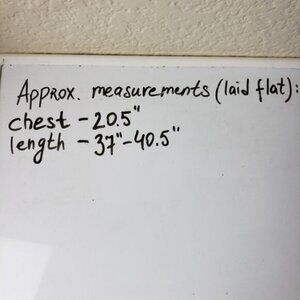 Approx. measurements (laid flat):
chest - 20.5"
length - 37"-40.5"